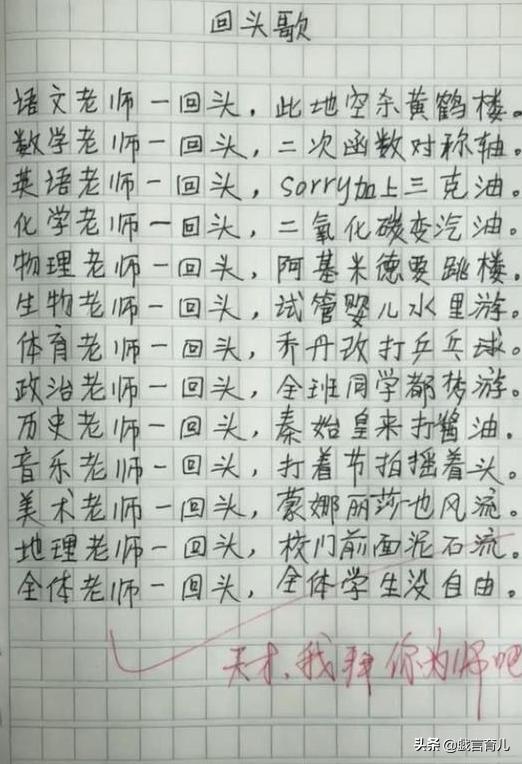 回头歌
语文老师一回头，此地空余黄鹤楼。
数学老师一回头，二次函数对称轴。
英语老师一回头，sorry加上三克油。
化学老师一回头，二氧化碳变汽油。
物理老师一回头，阿基米德要跳楼。
生物老师一回头，试管婴儿水里游。
体育老师一回头，乔丹改打乒乓球。
政治老师一回头，全班同学都梦游。
历史老师一回头，秦始皇来打酱油。
音乐老师一回头，打着节拍摇着头。
美术老师一回头，蒙娜丽莎也风流。
地理老师一回头，校门前面泥石流。
全体老师一回头，全体学生没自由。
天才，我拜你为师吧
头条 @戲言育儿